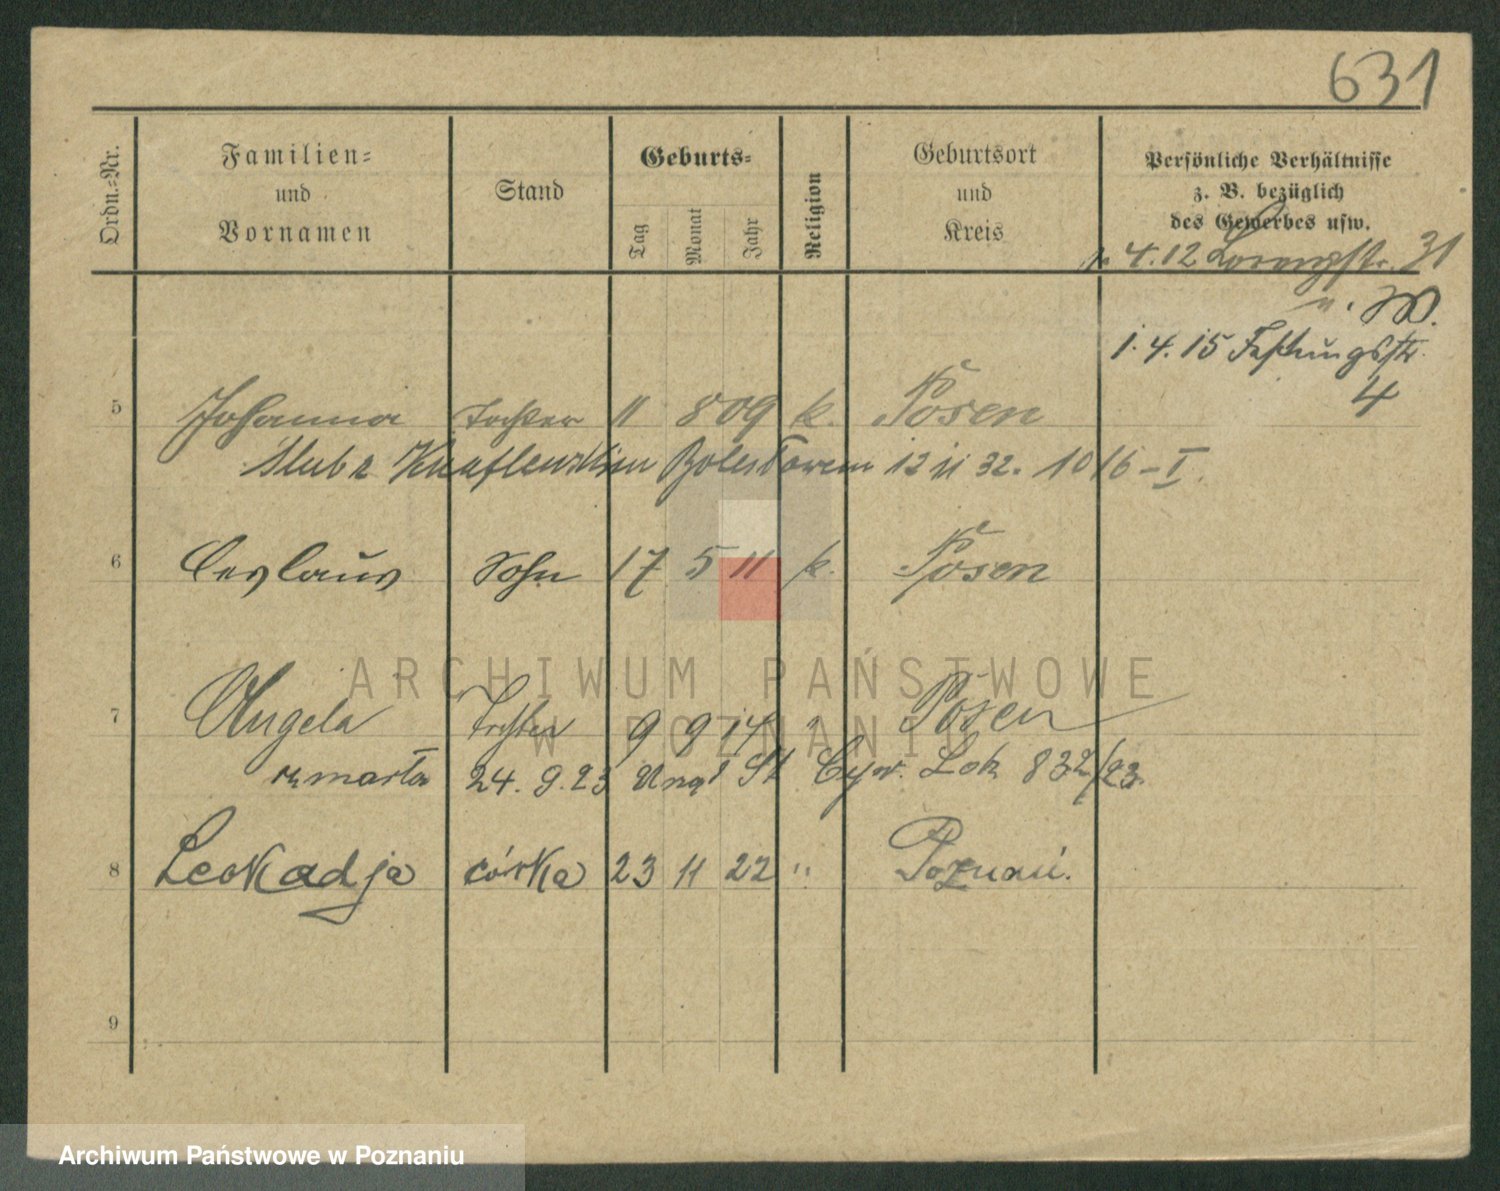 631
Ordn.=Nr.
Familien=
und
Vornamen
Stand
Geburts=
Tag
Monat
Jahr
Religion
Geburtsort
und
Kreis
Persönliche Verhältnisse
z. B. bezüglich
des Gewerbes usw.
4.12 Lorenzstr. 31
1.4.15 Festungsstr.
4
5 Johanna Tochter 11 8 09 k. Posen
Ślub z Bolesławem 12 11 32. 1016-I.
6 Ceslaus Sohn 17 5 11 k. Posen
7 Angela Tochter 9 9 14 " Posen
zmarła 24.9.23 St Cyw. 832/23.
8 Leokadja córka 23 11 22 " Poznań.
9
ARCHIWUM PAŃSTWOWE
W POZNANIU
Archiwum Państwowe w Poznaniu